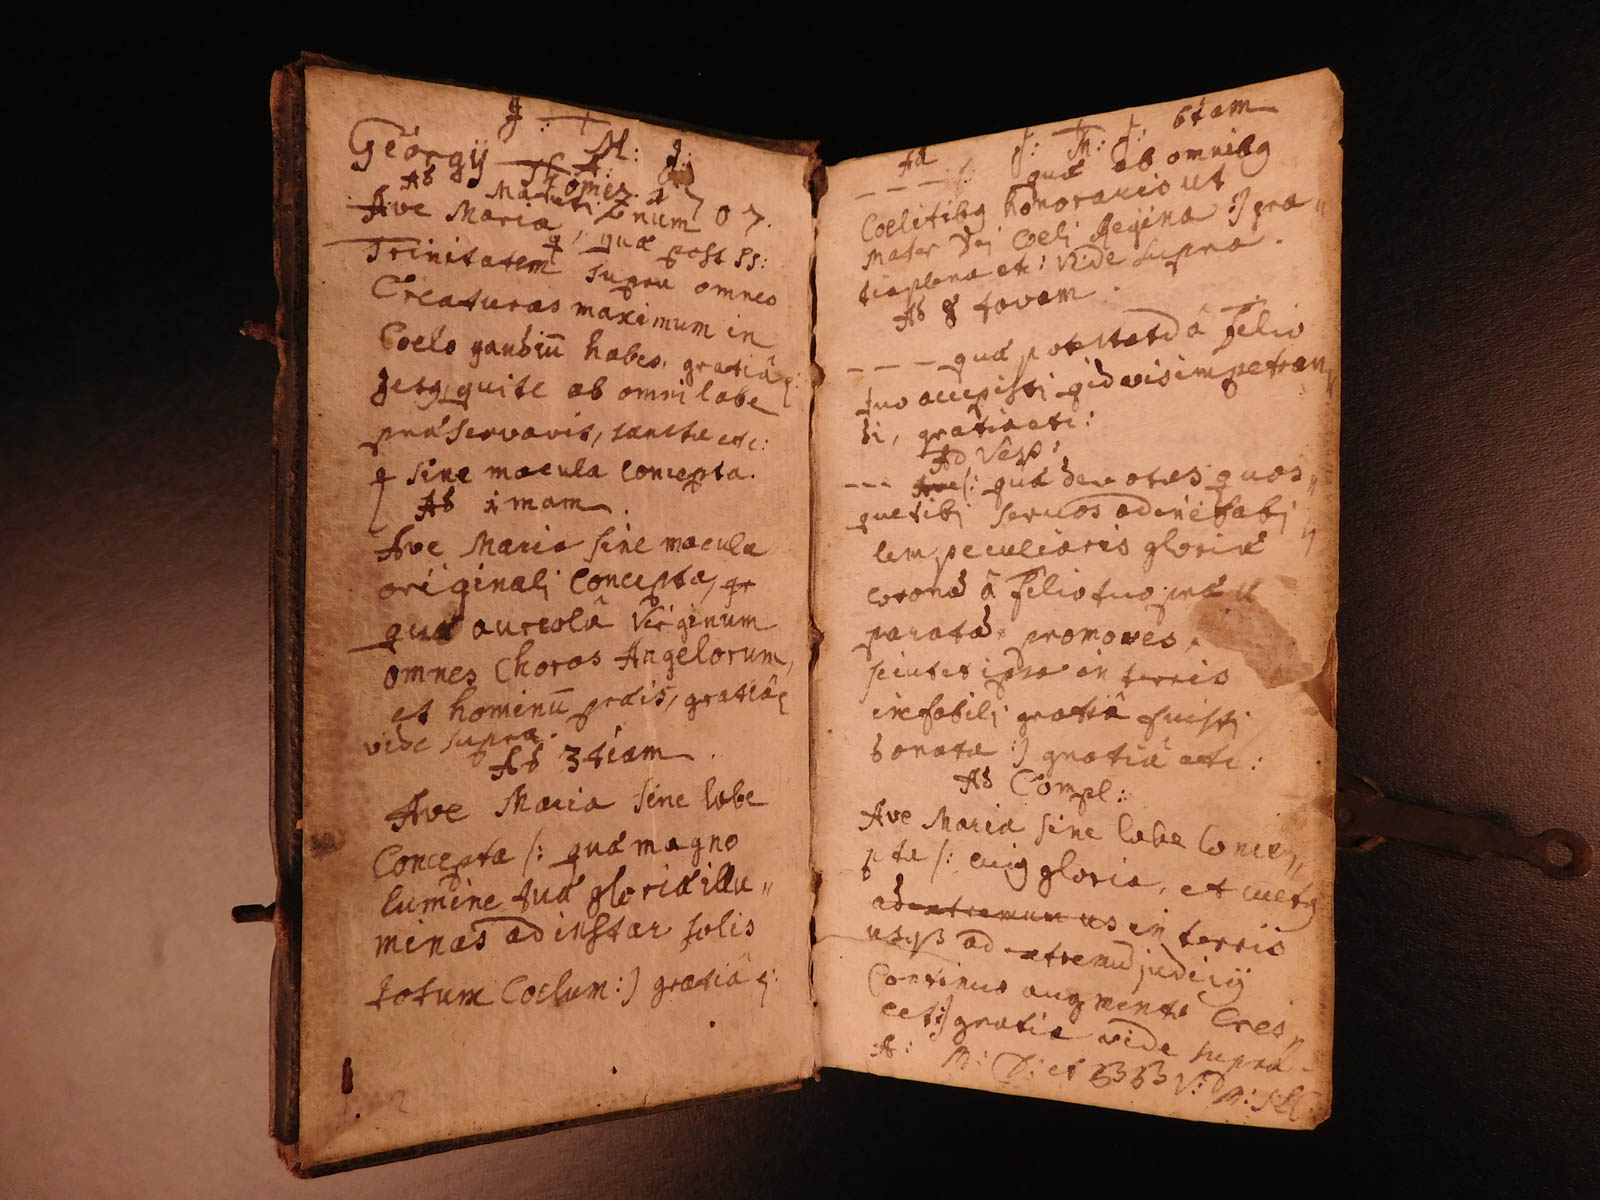 J : M : J :
Georgij Thomez 1707.
Ad Matutinum
Ave Maria /: quæ post SS:
Trinitatem supra omnes
Creaturas maximum in
Coelo gaudiũ habes, gratiâ
quite ab omni labe
præservavit, sancta etc:
sine macula concepta.
Ad 1mam.
Ave Maria sine macula
originali Concepta,
quæ aureolâ Virginum
omnes Choros Angelorum,
et hominũ præis, gratiâ
vide supra.
Ad 3tiam.
Ave Maria sine labe
Concepta /: quæ magno
lumine tuæ gloriæ illu„
minas ad instar solis
totum Coelum :) gratiâ
Ad J: M: J: 6tam
--- /: quæ ab omnibq
Coelitibq honoraris ut
Mater Dei Coeli Regina :) gra„
tia plena etc: vide supra.
Ad 8 tavam.
--- quæ potestatẽ â Filio
tuo accepisti qidvis impetran„
di, gratia etc:
Ad Vesp:
--- /: quæ devotos quos„
que tibi servos ad ineffabi„
lem peculiaris gloriæ
coronã â Filio tuo præ„
paratã promoves,
sicut et ipsa in terris
ineffabili gratiâ fuisti
donata :) gratiâ etc:
Ad Compl:
Ave Maria sine labe Concep„
pta /: cuiq gloria, et
ad extremum us in terris
usqß ad extremũ judicij
Continuo augmento Cres„
cet :) gratia vide supra.
A: M: D: et BB V: M: